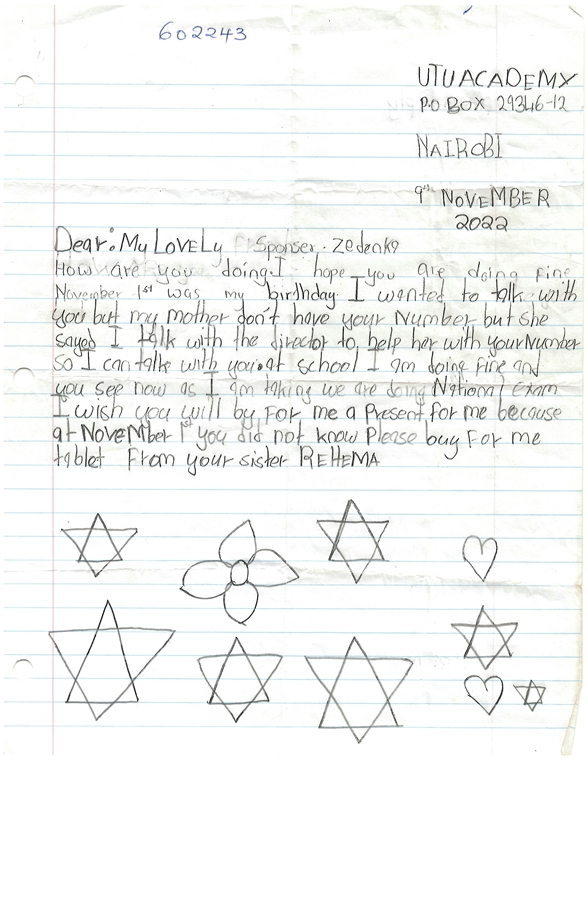 602243
UTU ACADEMY
P.O BOX 29346-12
NAIROBI
9th NOVEMBER
2022
Dear: My LoVELy Sponser. Zedenka
How are you doing.I hope you are doing fine
November 1st was my birthday. I wanted to talk with
you but my mother don't have your Number but she
sayed I talk with the director to help her with your Number
so I can talk with you.at school I am doing fine and
you see now as I am taking we are doing National Exam
I wish you will by For me a Present for me because
at NOVEMBER 1st you did not know Please buy For me
tablet From your sister REHEMA